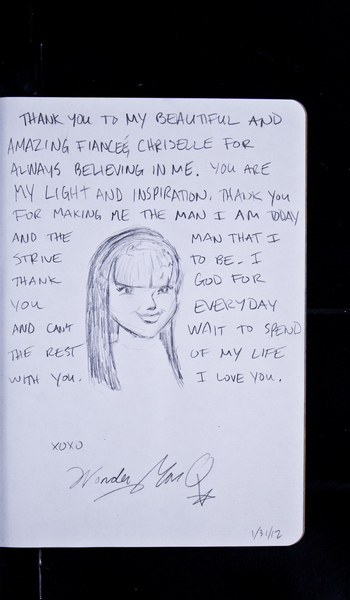 THANK YOU TO MY BEAUTIFUL AND
AMAZING FIANCEÉ CHRISELLE FOR
ALWAYS BELIEVING IN ME. YOU ARE
MY LIGHT AND INSPIRATION. THANK YOU
FOR MAKING ME THE MAN I AM TODAY
AND THE MAN THAT I
STRIVE TO BE. I
THANK GOD FOR
YOU EVERYDAY
AND CAN'T WAIT TO SPEND
THE REST OF MY LIFE
WITH YOU. I LOVE YOU.
XOXO
Wonder Man Q
1/31/12